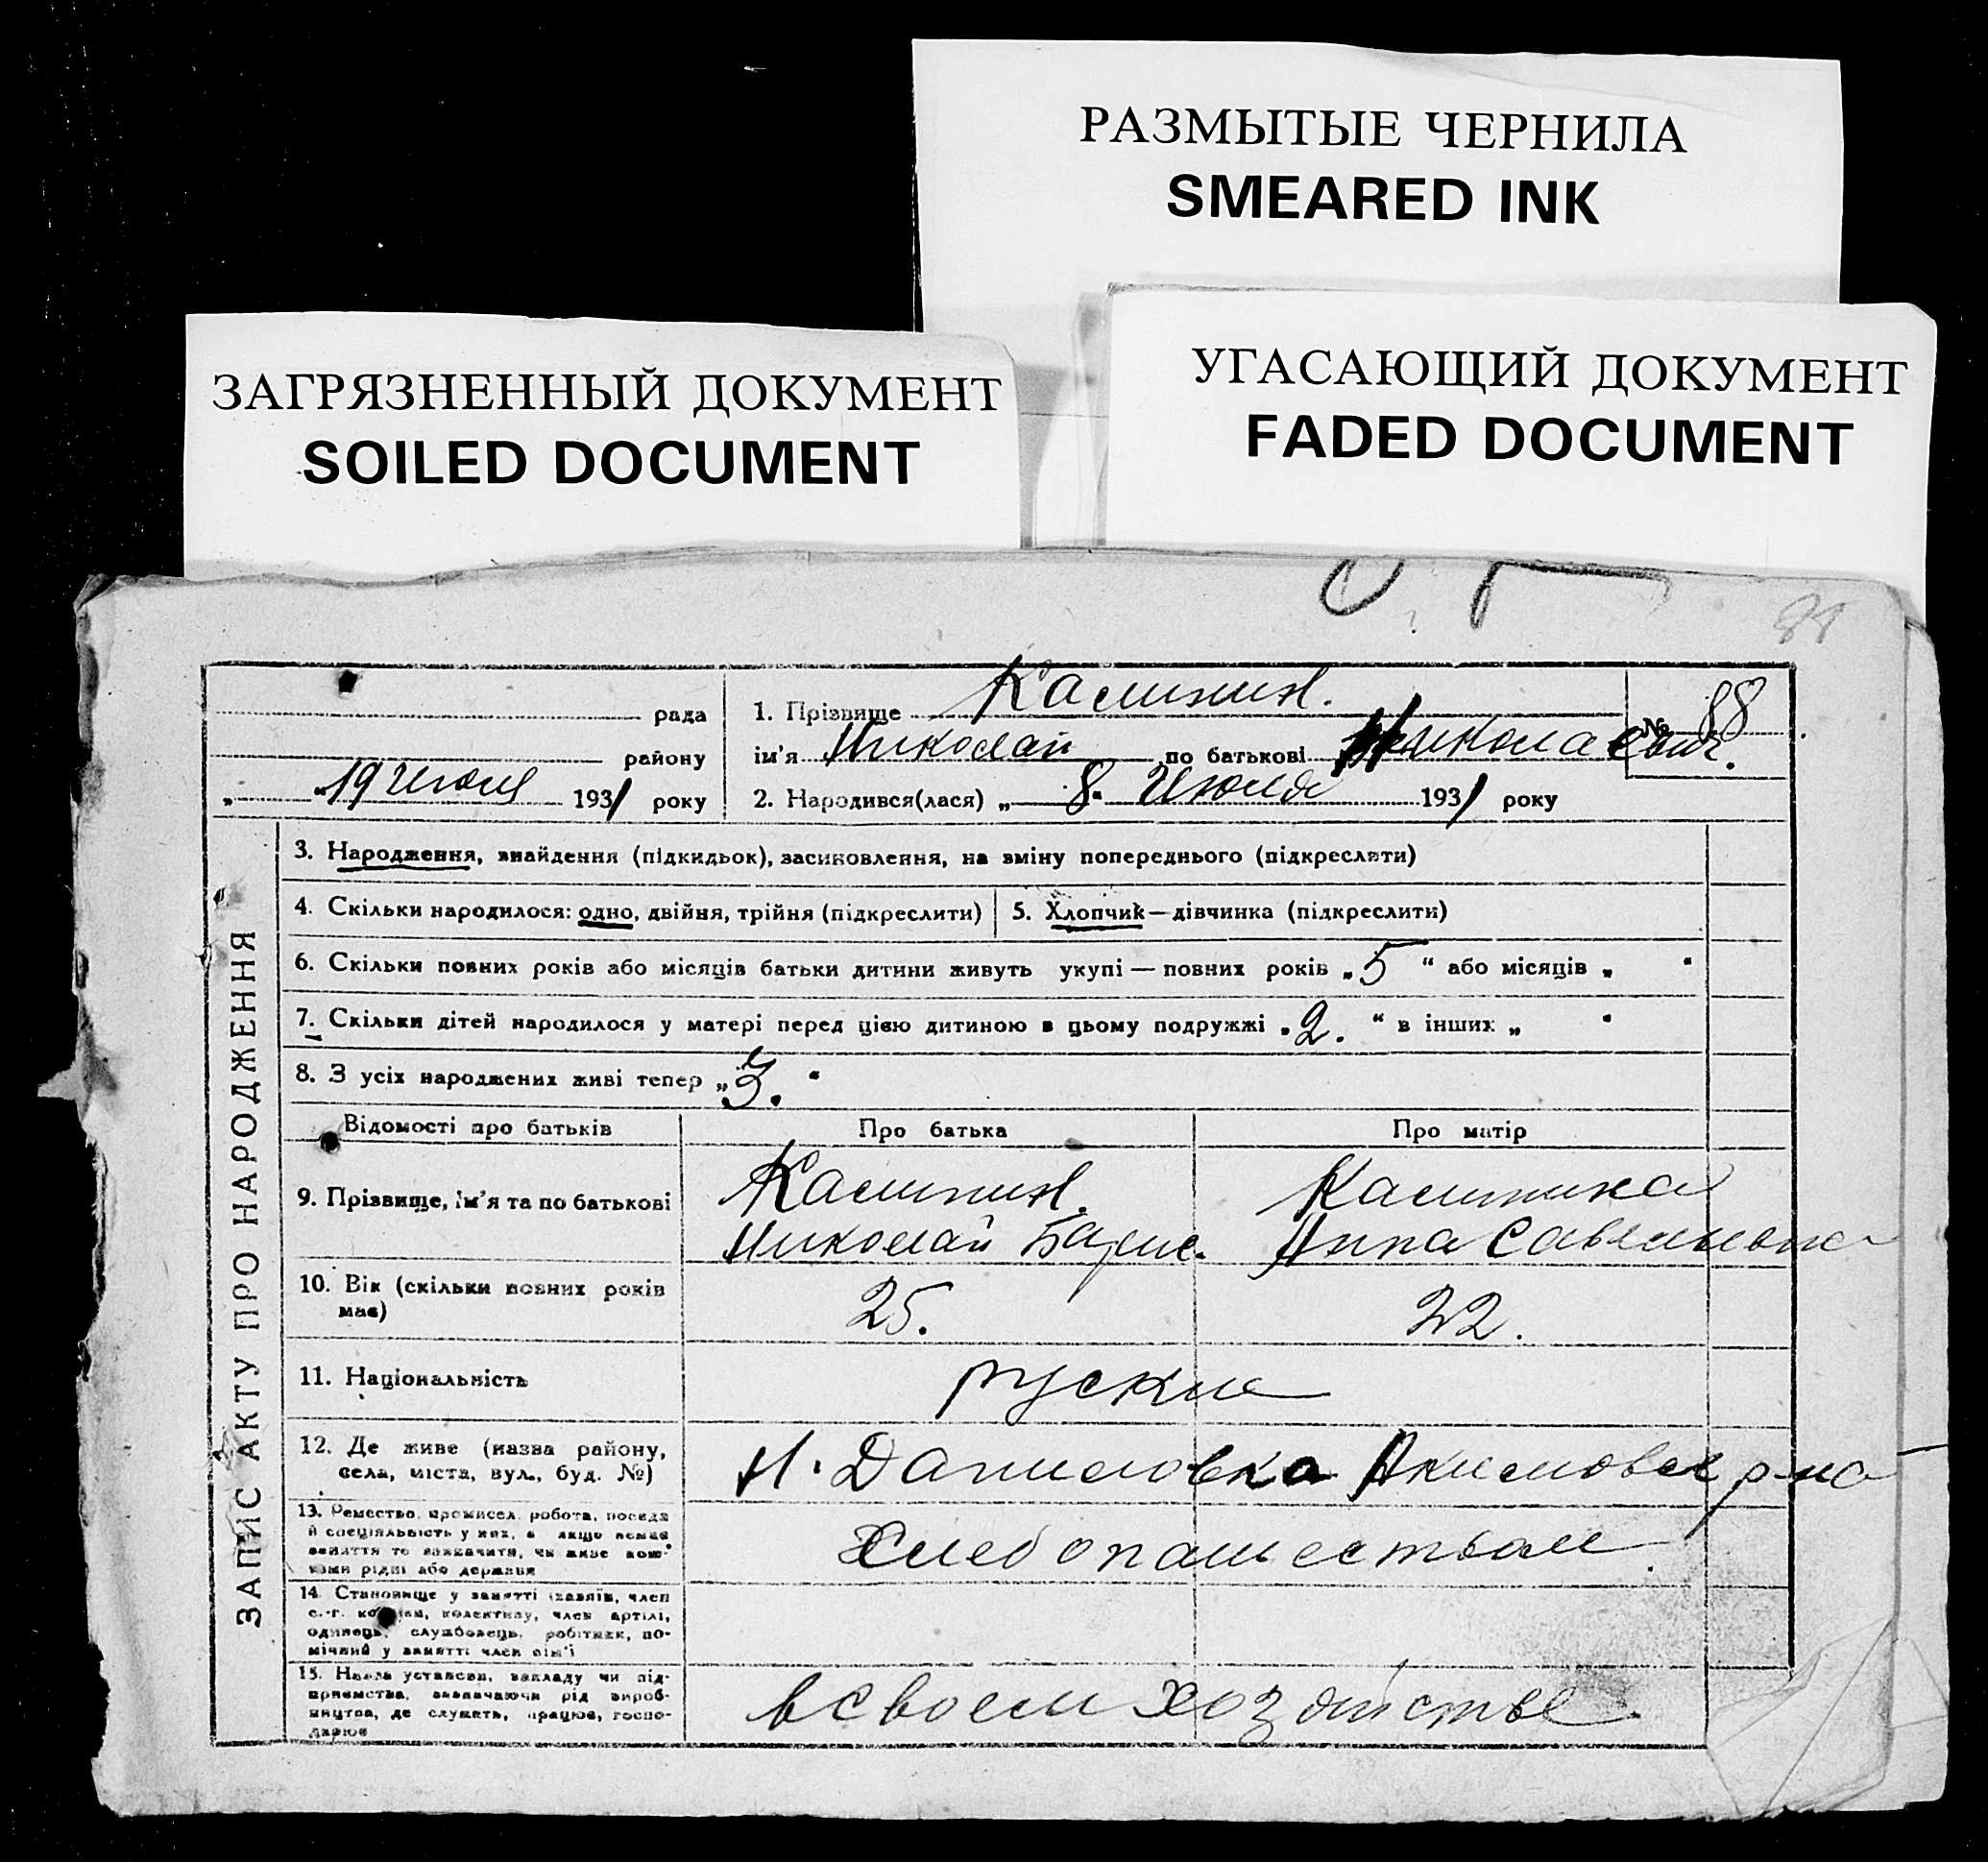 РАЗМЫТЫЕ ЧЕРНИЛА
SMEARED INK
ЗАГРЯЗНЕННЫЙ ДОКУМЕНТ
SOILED DOCUMENT
УГАСАЮЩИЙ ДОКУМЕНТ
FADED DOCUMENT
88
рада
району
„ “ 19 Июля 1931 року
1. Прізвище Калинин.
ім'я Николай по батькові Николаевич.
№ 88
2. Народився(лася) „ 8 “ Июля 1931 року
ЗАПИС АКТУ ПРО НАРОДЖЕННЯ
3. Народження, знайдення (підкидьок), засиновлення, на зміну попереднього (підкреслити)
4. Скільки народилося: одно, двійня, трійня (підкреслити)
5. Хлопчик — дівчинка (підкреслити)
6. Скільки повних років або місяців батьки дитини живуть укупі — повних років „ 5 “ або місяців „ “
7. Скільки дітей народилося у матері перед цією дитиною в цьому подружжі „ 2. “ в інших „ “
8. З усіх народжених живі тепер „ 3. “
Відомості про батьків
Про батька
Про матір
9. Прізвище, ім'я та по батькові
Калинин.
Николай Барис.
Калинина
Анна Савельевна
10. Вік (скільки повних років
має)
25.
22.
11. Національність
руские
12. Де живе (назва району,
села, міста, вул., буд. №)
Н. Даниловка Акимовск р-на
13. Ремество, промисел, робота, посада
й спеціяльність у них, а якщо немає
заняття то зазначити, чи живе кош-
тами рідні або держави
Хлебопашеством
14. Становище у занятті (хазяїн, член
с.-г. комуни, колективу, член артілі,
одинець, службовець, робітник, по-
мічний у занятті член сім'ї
15. Назва установи, закладу чи під-
приємства, зазначаючи рід вироб-
ництва, де служить, працює, госпо-
дарює
в своем хозяйстве.